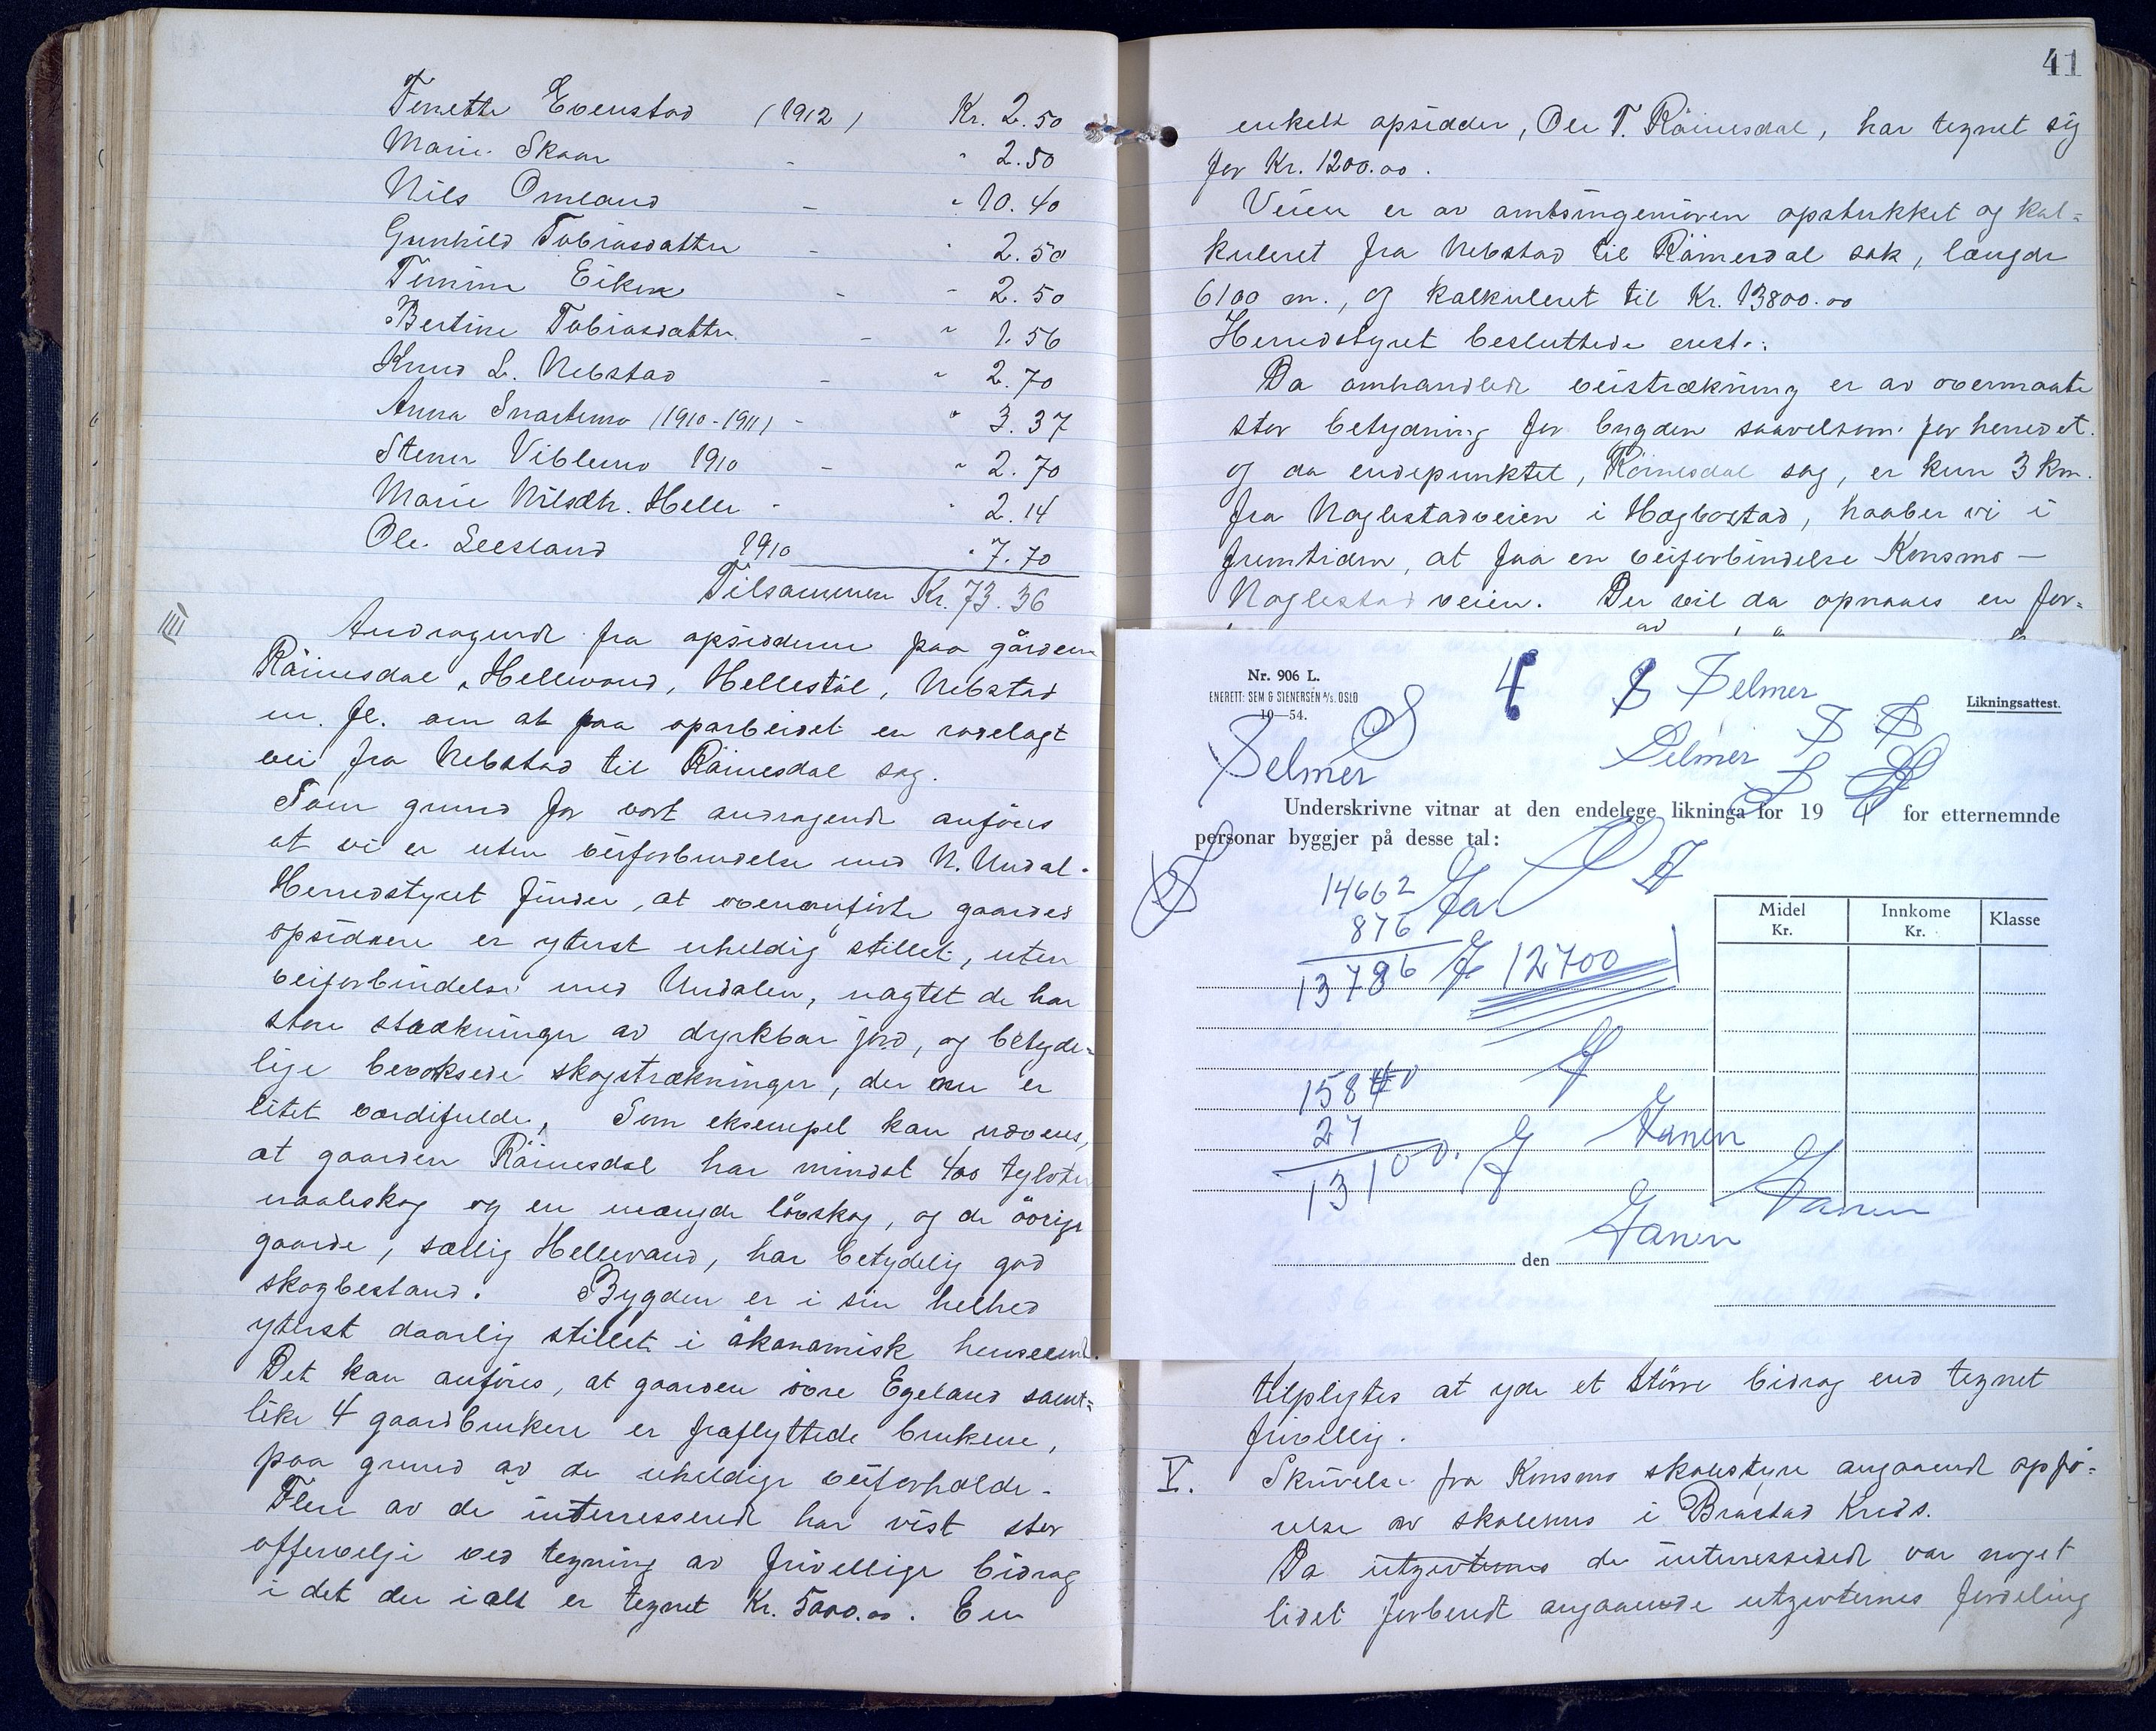 Tenette Evenstad (1912) Kr. 2.50
Marie Skaar - " 2.50
Nils Omland - " 10.40
Gunhild Tobiasdatter - " 2.50
Temine Eiken - " 2.50
Bertine Tobiasdatter - " 1.56
Knud L. Nebstad - " 2.70
Anna Snartemo (1910-1911) - " 3.37
Stener Viblemo 1910 - " 2.70
Marie Nilsdtr. Helle - " 2.14
Ole Leesland 1910 " 7.70
Tilsammen Kr. 73.36
IIII Andragende fra opsidderne paa gårdene
Råinesdal, Hellevand, Hellestöl, Nebstad
m. fl. om at faa oparbeidet en rodelagt
vei fra Nebstad til Råinesdal sag.
Som grund for vort andragende anföres
at vi er uten veiforbindelse med N. Undal.
Herredstyret finder, at ovenanförte gaardes
opsiddere er yterst uheldig stillet, uten
veiforbindelse med Undalen, uagtet de har
store strækninger av dyrkbar jord, og betyde=
lige bevoksede skogstrækninger, der nu er
litet værdifulde, Som eksempel kan nævnes,
at gaarden Råinesdal har mindst 400 tylvter
naaleskog og en mængde lövskog, og de övrige
gaarde, særlig Hellevand, har betydelig god
skogbestand. Bygden er i sin helhed
yterst daarlig stillet i ökonomisk henseende.
Det kan anföres, at gaarden övre Egeland samt=
like 4 gaardbrukere er fraflyttede brukene,
paa grund av de uheldige veiforholde.
Flere av de interresserede har vist stor
offervelje ved tegning av frivellige bidrag
i det der i alt er tegnet Kr. 5000.00. En
41
enkelt opsidder, Ole T. Råinesdal, har tegnet sig
for Kr. 1200.00.
Veien er av amtsingeniören opstukket og kal=
kuleret fra Nebstad til Råinesdal sak, længde
6100 m., og kalkuleret til Kr. 13800.00
Herredstyret besluttede enst.:
Da omhandlede veistrækning er av overmaate
stor betydning for bygden saavelsom for herredet.
og da endepunktet, Råinesdal sag, er kun 3 km.
fra Naglestadveien i Hægbostad, haaber vi i
fremtiden, at faa en veiforbindelse Konsmo —
Naglestad veien. Der vil da opnaaes en for=
Nr. 906 L.
ENERETT: SEM & STENERSEN A/S. OSLO
10—54.
4 S Selmer
Likningsattest.
Selmer S
Selmer S S
S S
Underskrivne vitnar at den endelege likninga for 19 4 for etternemnde
personar byggjer på desse tal:
14662
876
13786 12700
Midel
Kr.
Innkome
Kr.
Klasse
15840
27
13100.
Janen
Janen
Janen
den
tilpligtes at yde et större bidrag end tegnet
frivellig.
V. Skrivelse fra Konsmo skolestyre angaaende opfö=
relse av skolehus i Brastad Kreds.
Da utgivternes de interresserede var noget
lidet forberedt angaaende utgivternes fordeling